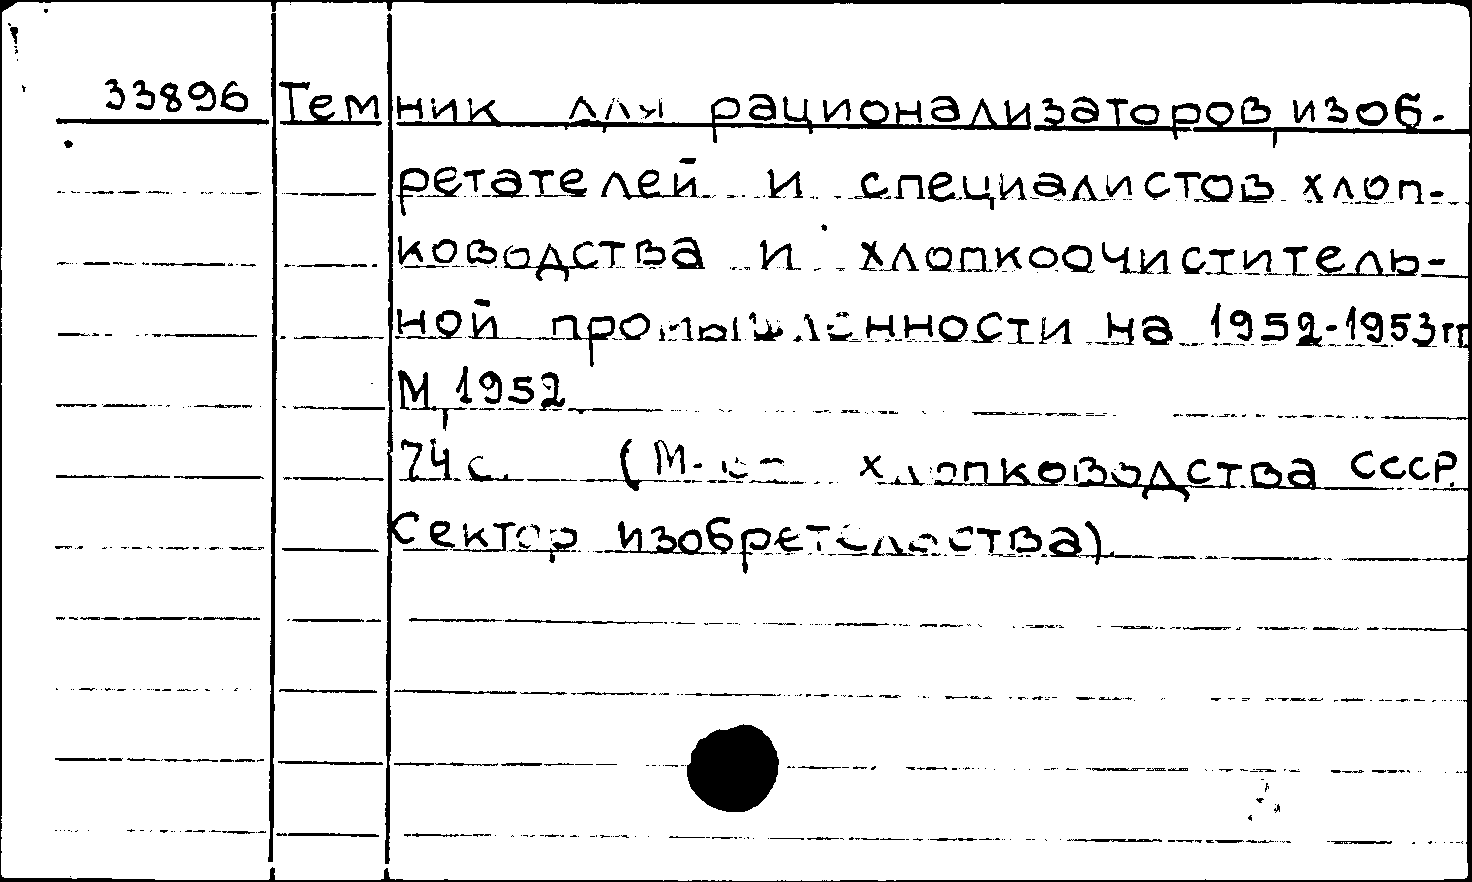 33896 Темник для рационализаторов, изоб-
ретателей и специалистов хлоп-
ководства и хлопкоочиститель-
ной промышленности на 1952-1953гг
М, 1952
74 с. (М-во хлопководства СССР.
Сектор изобретельства).